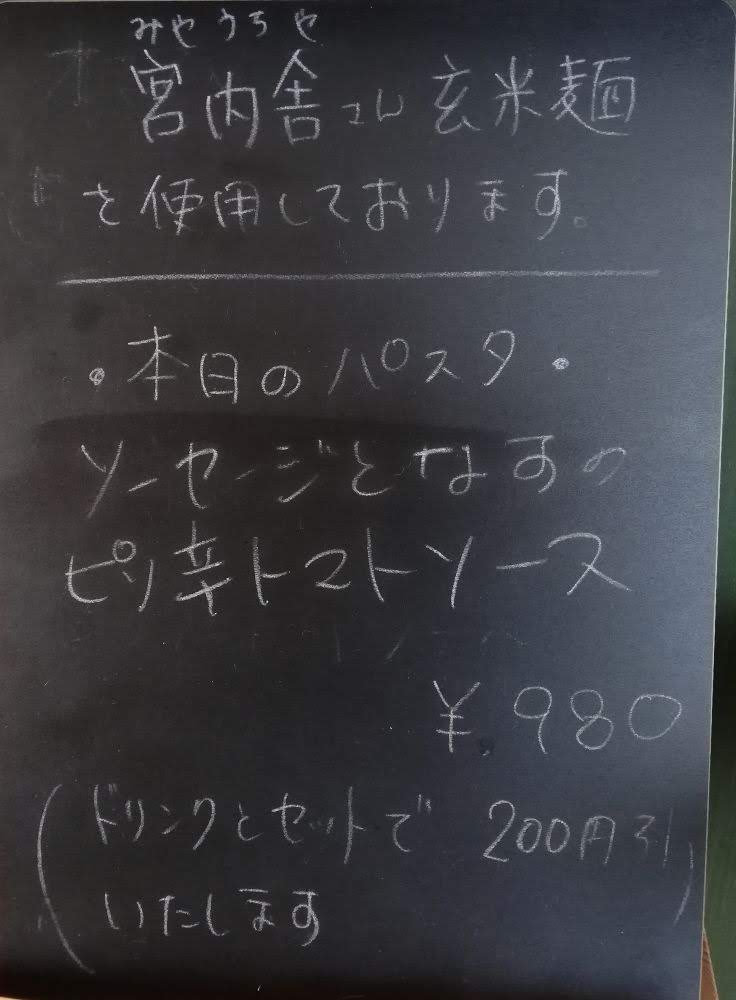 みやうちや
宮内舎さん玄米麺
を使用しております。
・本日のパスタ・
ソーセージとなすの
ピリ辛トマトソース
¥980
(ドリンクとセットで 200円引
いたします)